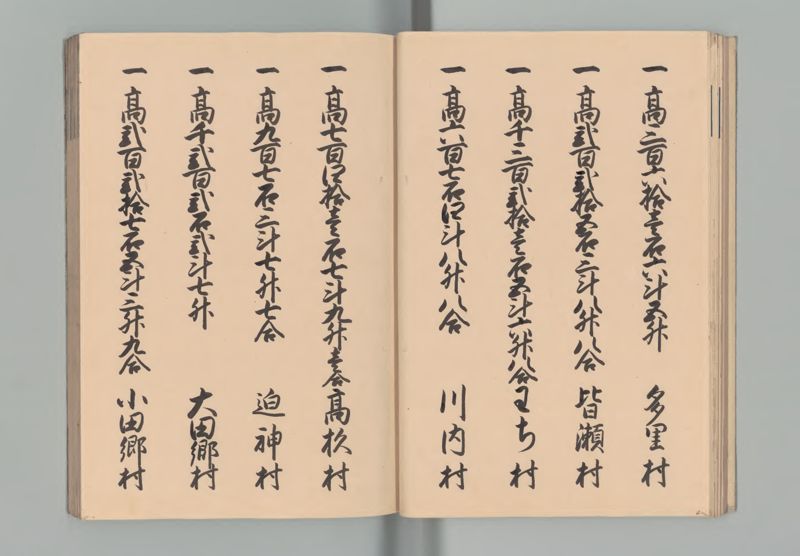 一 高三百六拾壱石六斗五升 多里村
一 高弐百弐拾五石三斗八升八合 皆瀬村
一 高千三百弐拾壱石五斗六升八合 王ち村
一 高六百七石四斗八升八合 川内村
一 高七百四拾壱石七斗九升壱合 高杉村
一 高九百七石三斗七升七合 迫神村
一 高千弐百弐石弐斗七升 大田郷村
一 高弐百弐拾七石五斗三升九合 小田郷村